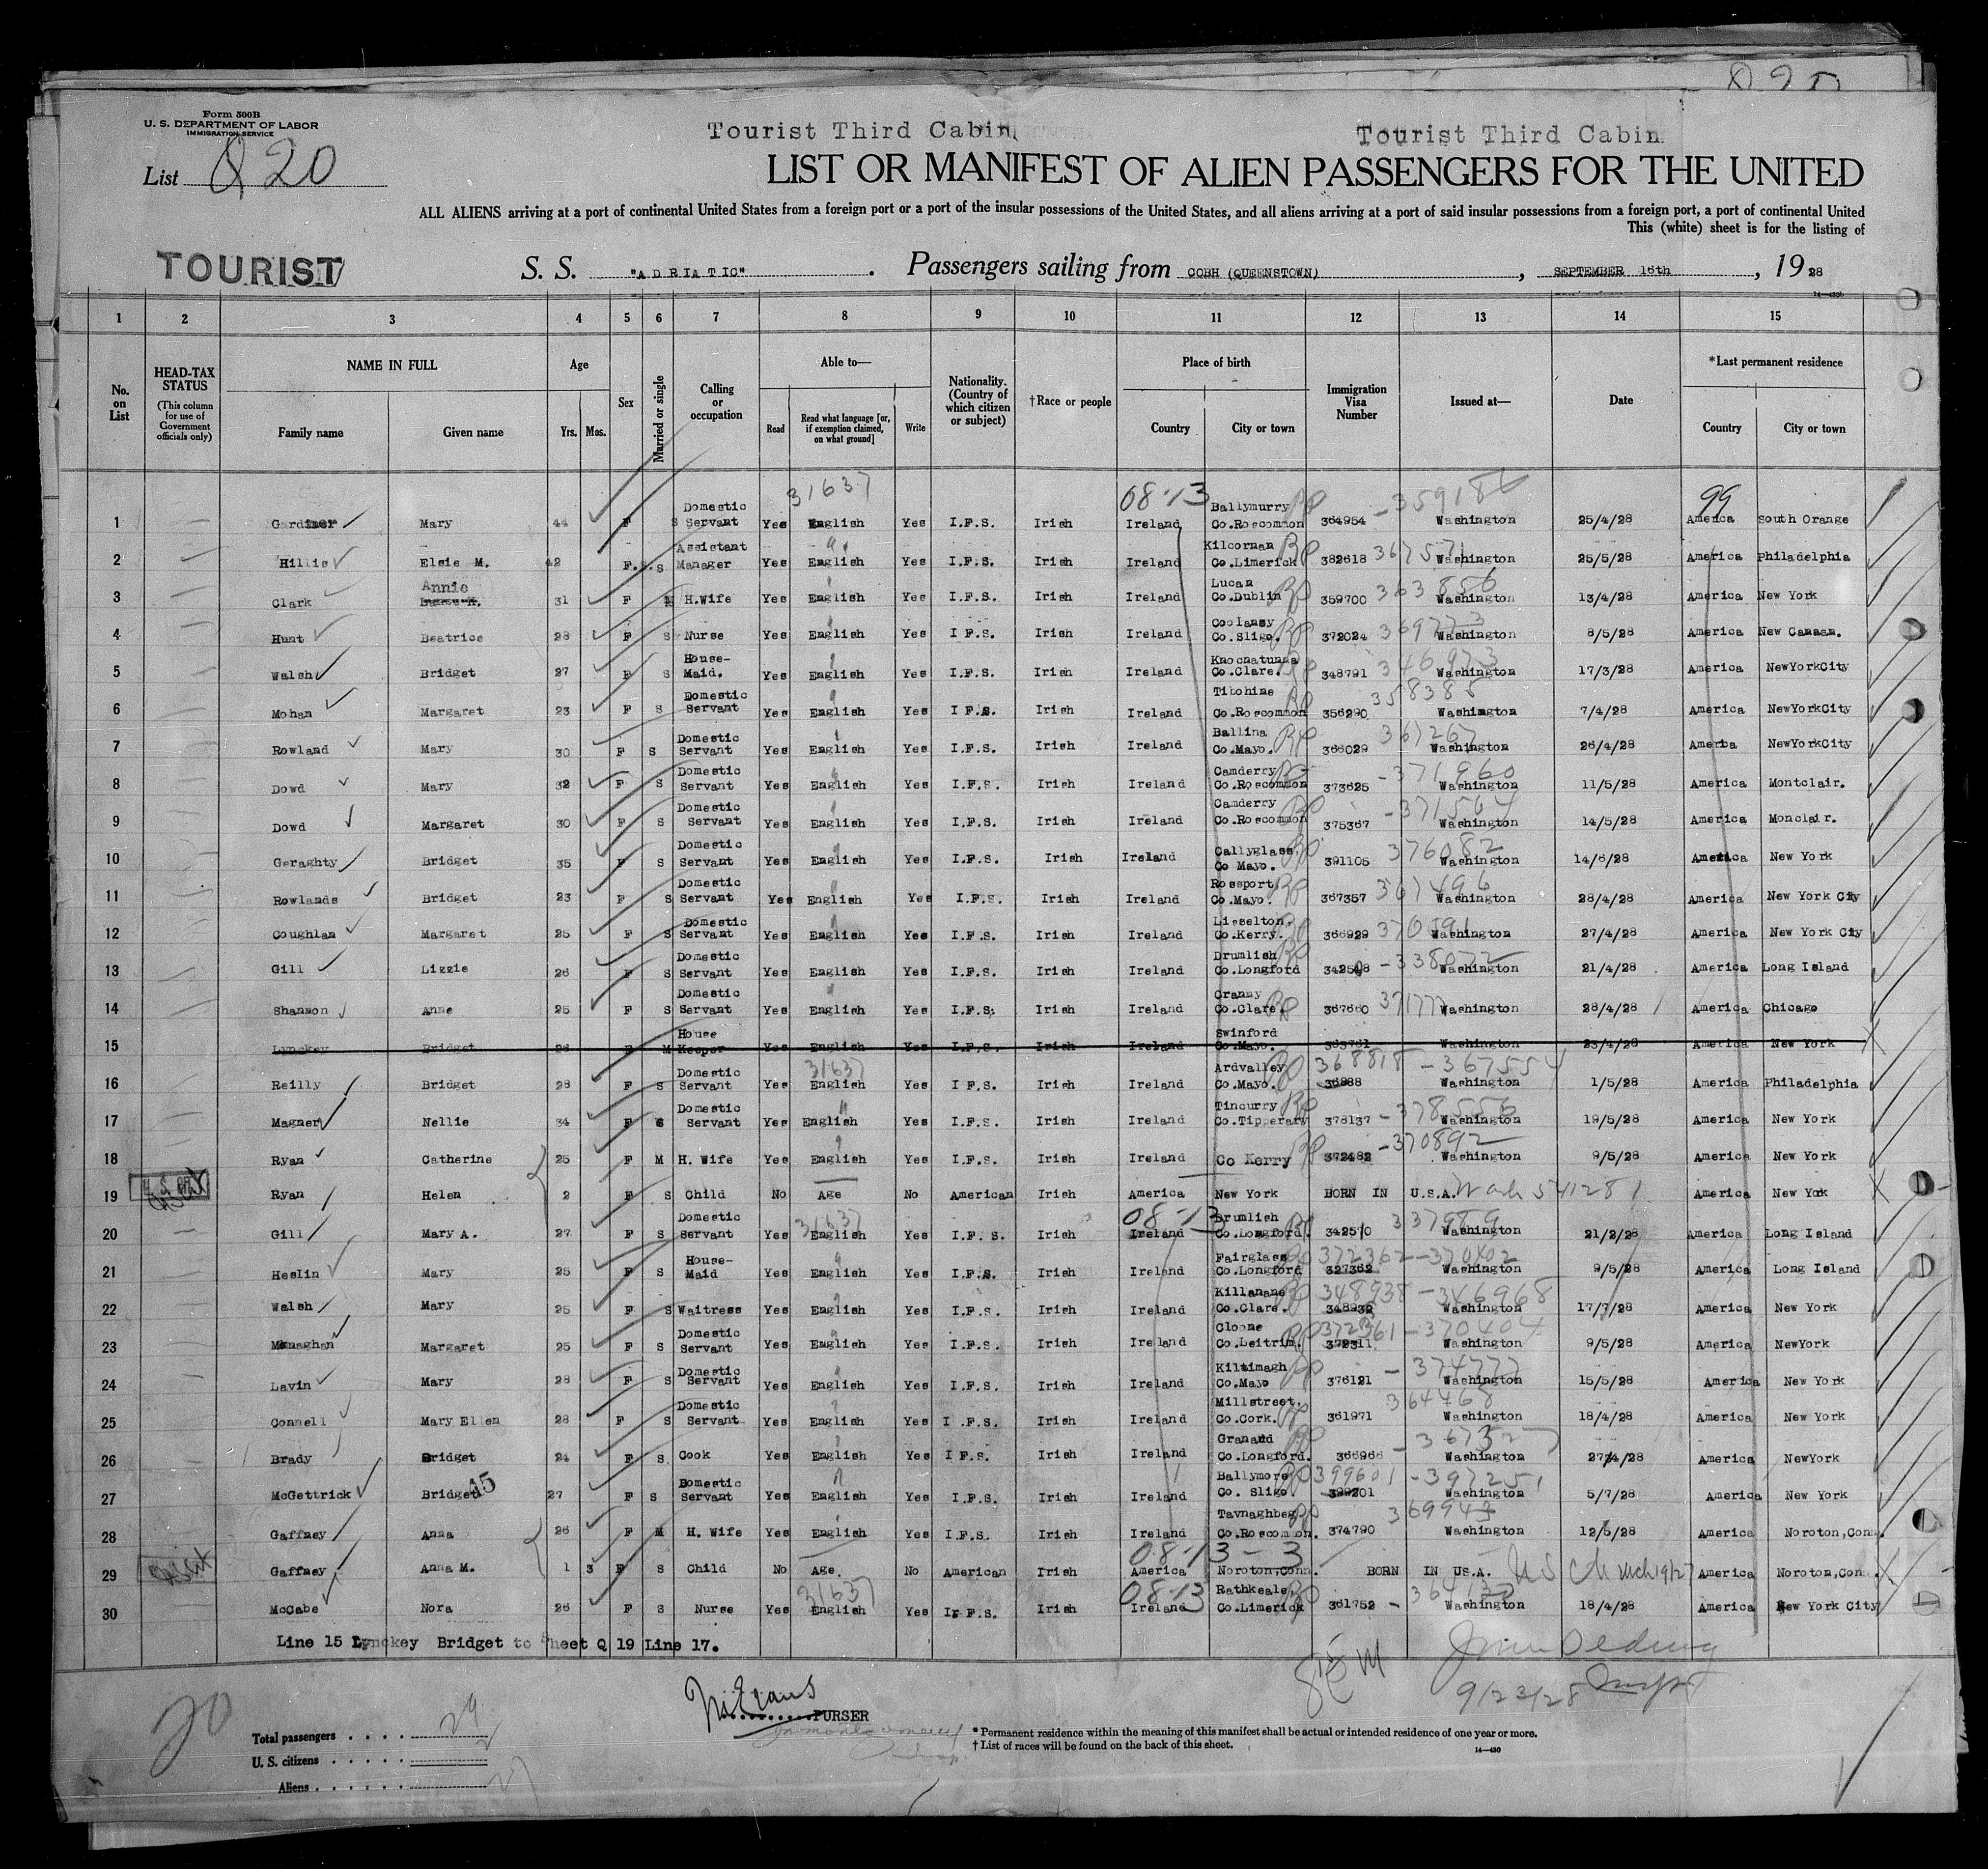 Form 500B
U. S. DEPARTMENT OF LABOR
IMMIGRATION SERVICE
List Q 20
Tourist Third Cabin
Tourist Third Cabin
LIST OR MANIFEST OF ALIEN PASSENGERS FOR THE UNITED
ALL ALIENS arriving at a port of continental United States from a foreign port or a port of the insular possessions of the United States, and all aliens arriving at a port of said insular possessions from a foreign port, a port of continental United
This (white) sheet is for the listing of
TOURIST
S. S. "ADRIATIC" . Passengers sailing from COBH (QUEENSTOWN) , SEPTEMBER 16th , 1928
1 2 3 4 5 6 7 8 9 10 11 12 13 14 15
No. on List
HEAD-TAX STATUS (This column for use of Government officials only)
NAME IN FULL Family name Given name
Age Yrs. Mos.
Sex
Married or single
Calling or occupation
Able to— Read Read what language [or, if exemption claimed, on what ground] Write
Nationality. (Country of which citizen or subject)
†Race or people
Place of birth Country City or town
Immigration Visa Number
Issued at—
Date
*Last permanent residence Country City or town
31637 08-13 359186 99
1 Gardiner Mary 44 F S Domestic Servant Yes English Yes I.F.S. Irish Ireland Ballymurry Co.Roscommon 364954 Washington 25/4/28 America South Orange
2 Hillis Elsie M. 42 F. S Assistant Manager Yes English Yes I.F.S. Irish Ireland Kilcornan Co.Limerick 382618 Washington 25/5/28 America Philadelphia
3 Clark Annie 31 F M H.Wife Yes English Yes I.F.S. Irish Ireland Lucan Co.Dublin 359700 363856 Washington 13/4/28 America New York
4 Hunt Beatrice 28 F S Nurse Yes English Yes I F.S. Irish Ireland Coolaney Co.Sligo. 372024 Washington 8/5/28 America New Canaan.
5 Walsh Bridget 27 F S House-Maid. Yes English Yes I.F.S. Irish Ireland Knocnatunna Co.Clare. 348791 346973 Washington 17/3/28 America NewYorkCity
6 Mohan Margaret 23 F S Domestic Servant Yes English Yes I F.S. Irish Ireland Tibohine Co.Roscommon 356290 358385 Washington 7/4/28 America NewYorkCity
7 Rowland Mary 30 F S Domestic Servant Yes English Yes I.F.S. Irish Ireland Ballina Co.Mayo. 366029 367267 Washington 26/4/28 America NewYorkCity
8 Dowd Mary 32 F S Domestic Servant Yes English Yes I.F.S. Irish Ireland Camderry Co.Roscommon 373625 -371960 Washington 11/5/28 America Montclair.
9 Dowd Margaret 30 F S Domestic Servant Yes English Yes I.F.S. Irish Ireland Camderry Co.Roscommon 375367 -371564 Washington 14/5/28 America Monclair.
10 Geraghty Bridget 35 F S Domestic Servant Yes English Yes I.F.S. Irish Ireland Callyglass Co Mayo. 391105 376082 Washington 14/6/28 America New York
11 Rowlands Bridget 23 F S Domestic Servant Yes English Yes I.F.S. Irish Ireland Rossport, Co.Mayo. 367357 367496 Washington 28/4/28 America New York City
12 Coughlan Margaret 25 F S Domestic Servant Yes English Yes I.F.S. Irish Ireland Lisselton. Co.Kerry. 366929 Washington 27/4/28 America New York City
13 Gill Lizzie 26 F S Domestic Servant Yes English Yes I.F.S. Irish Ireland Drumlish Co.Longford -338072 Washington 21/4/28 America Long Island
14 Shannon Anne 25 F S Domestic Servant Yes English Yes I.F.S. Irish Ireland Cranny Co.Clare. 367660 371777 Washington 28/4/28 America Chicago
15 Lynckey Bridget 26 F M House Keeper Yes English Yes I.F.S. Irish Ireland Swinford Co.Mayo. 363761 Washington 23/4/28 America New York
16 Reilly Bridget 28 F S Domestic Servant Yes 31637 English Yes I F.S. Irish Ireland Ardvalley Co.Mayo. 36888 368818 -367554 Washington 1/5/28 America Philadelphia
17 Magner Nellie 34 F S Domestic Servant Yes English Yes I.F.S. Irish Ireland Tincurry Co.Tipperary 378137 -378556 Washington 19/5/28 America New York
18 Ryan Catherine 25 F M H. Wife Yes English Yes I.F.S. Irish Ireland Co Kerry 372482 -370892 Washington 9/5/28 America New York
19 Ryan Helen 2 F S Child No Age No American Irish America New York BORN IN U.S.A. America New York
20 Gill Mary A. 27 F S Domestic Servant Yes 31637 English Yes I.F. S. Irish 08-13 Ireland Drumlish Co.Longford. 342510 337989 Washington 21/2/28 America Long Island
21 Heslin Mary 25 F S House-Maid Yes English Yes I.F.S. Irish Ireland Fairglass Co.Longford 327362 372362-370402 Washington 9/5/28 America Long Island
22 Walsh Mary 25 F S Waitress Yes English Yes I.F.S. Irish Ireland Killanane Co.Clare. 348938-346968 Washington 17/7/28 America New York
23 Monaghan Margaret 25 F S Domestic Servant Yes English Yes I.F.S. Irish Ireland Cloone Co.Leitrim. 372311 372361-370404 Washington 9/5/28 America NewYork
24 Lavin Mary 28 F S Domestic Servant Yes English Yes I.F.S. Irish Ireland Kiltimagh Co.Mayo 376121 - 374777 Washington 15/5/28 America New York
25 Connell Mary Ellen 28 F S Domestic Servant Yes English Yes I .F.S. Irish Ireland Millstreet, Co.Cork. 361971 364468 Washington 18/4/28 America New York
26 Brady Bridget 24 F S Cook Yes English Yes I F.S. Irish Ireland Granard Co.Longford. 366966 - 367327 Washington 27/4/28 America NewYork
27 McGettrick Bridget 27 F S Domestic Servant Yes English Yes I.F.S. Irish Ireland Ballymore Co. Sligo 399201 399601 -397251 Washington 5/7/28 America New York
28 Gaffney Anna 26 F M H. Wife Yes English Yes I.F.S. Irish Ireland Tavnaghbeg Co.Roscommon. 374790 369943 Washington 12/5/28 America Noroton,Conn.
29 Gaffney Anna M. 1 3 F S Child No Age. No American Irish 08-13-3 America Noroton,Conn. BORN IN US.A. America Noroton,Conn.
30 McCabe Nora 26 F S Nurse Yes 31637 English Yes Ir F.S. Irish 08-13 Ireland Rathkeale, Co.Limerick 361752 - Washington 18/4/28 America New York City
Line 15 Lynckey Bridget to Sheet Q 19 Line 17.
20
PURSER
9/23/28
Total passengers . . . . 29
U. S. citizens . . . . .
Aliens . . . . . .
* Permanent residence within the meaning of this manifest shall be actual or intended residence of one year or more.
† List of races will be found on the back of this sheet.
14—430